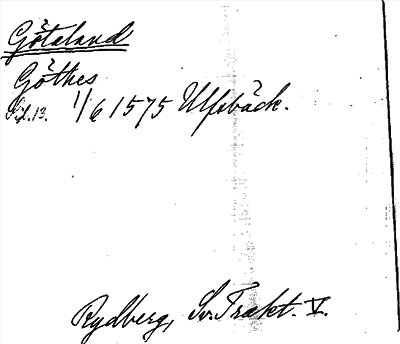 Götaland
Göthes
Sid. 13. 1/6 1575 Ulfsbäck.
Rydberg, Sv. Trakt. V.